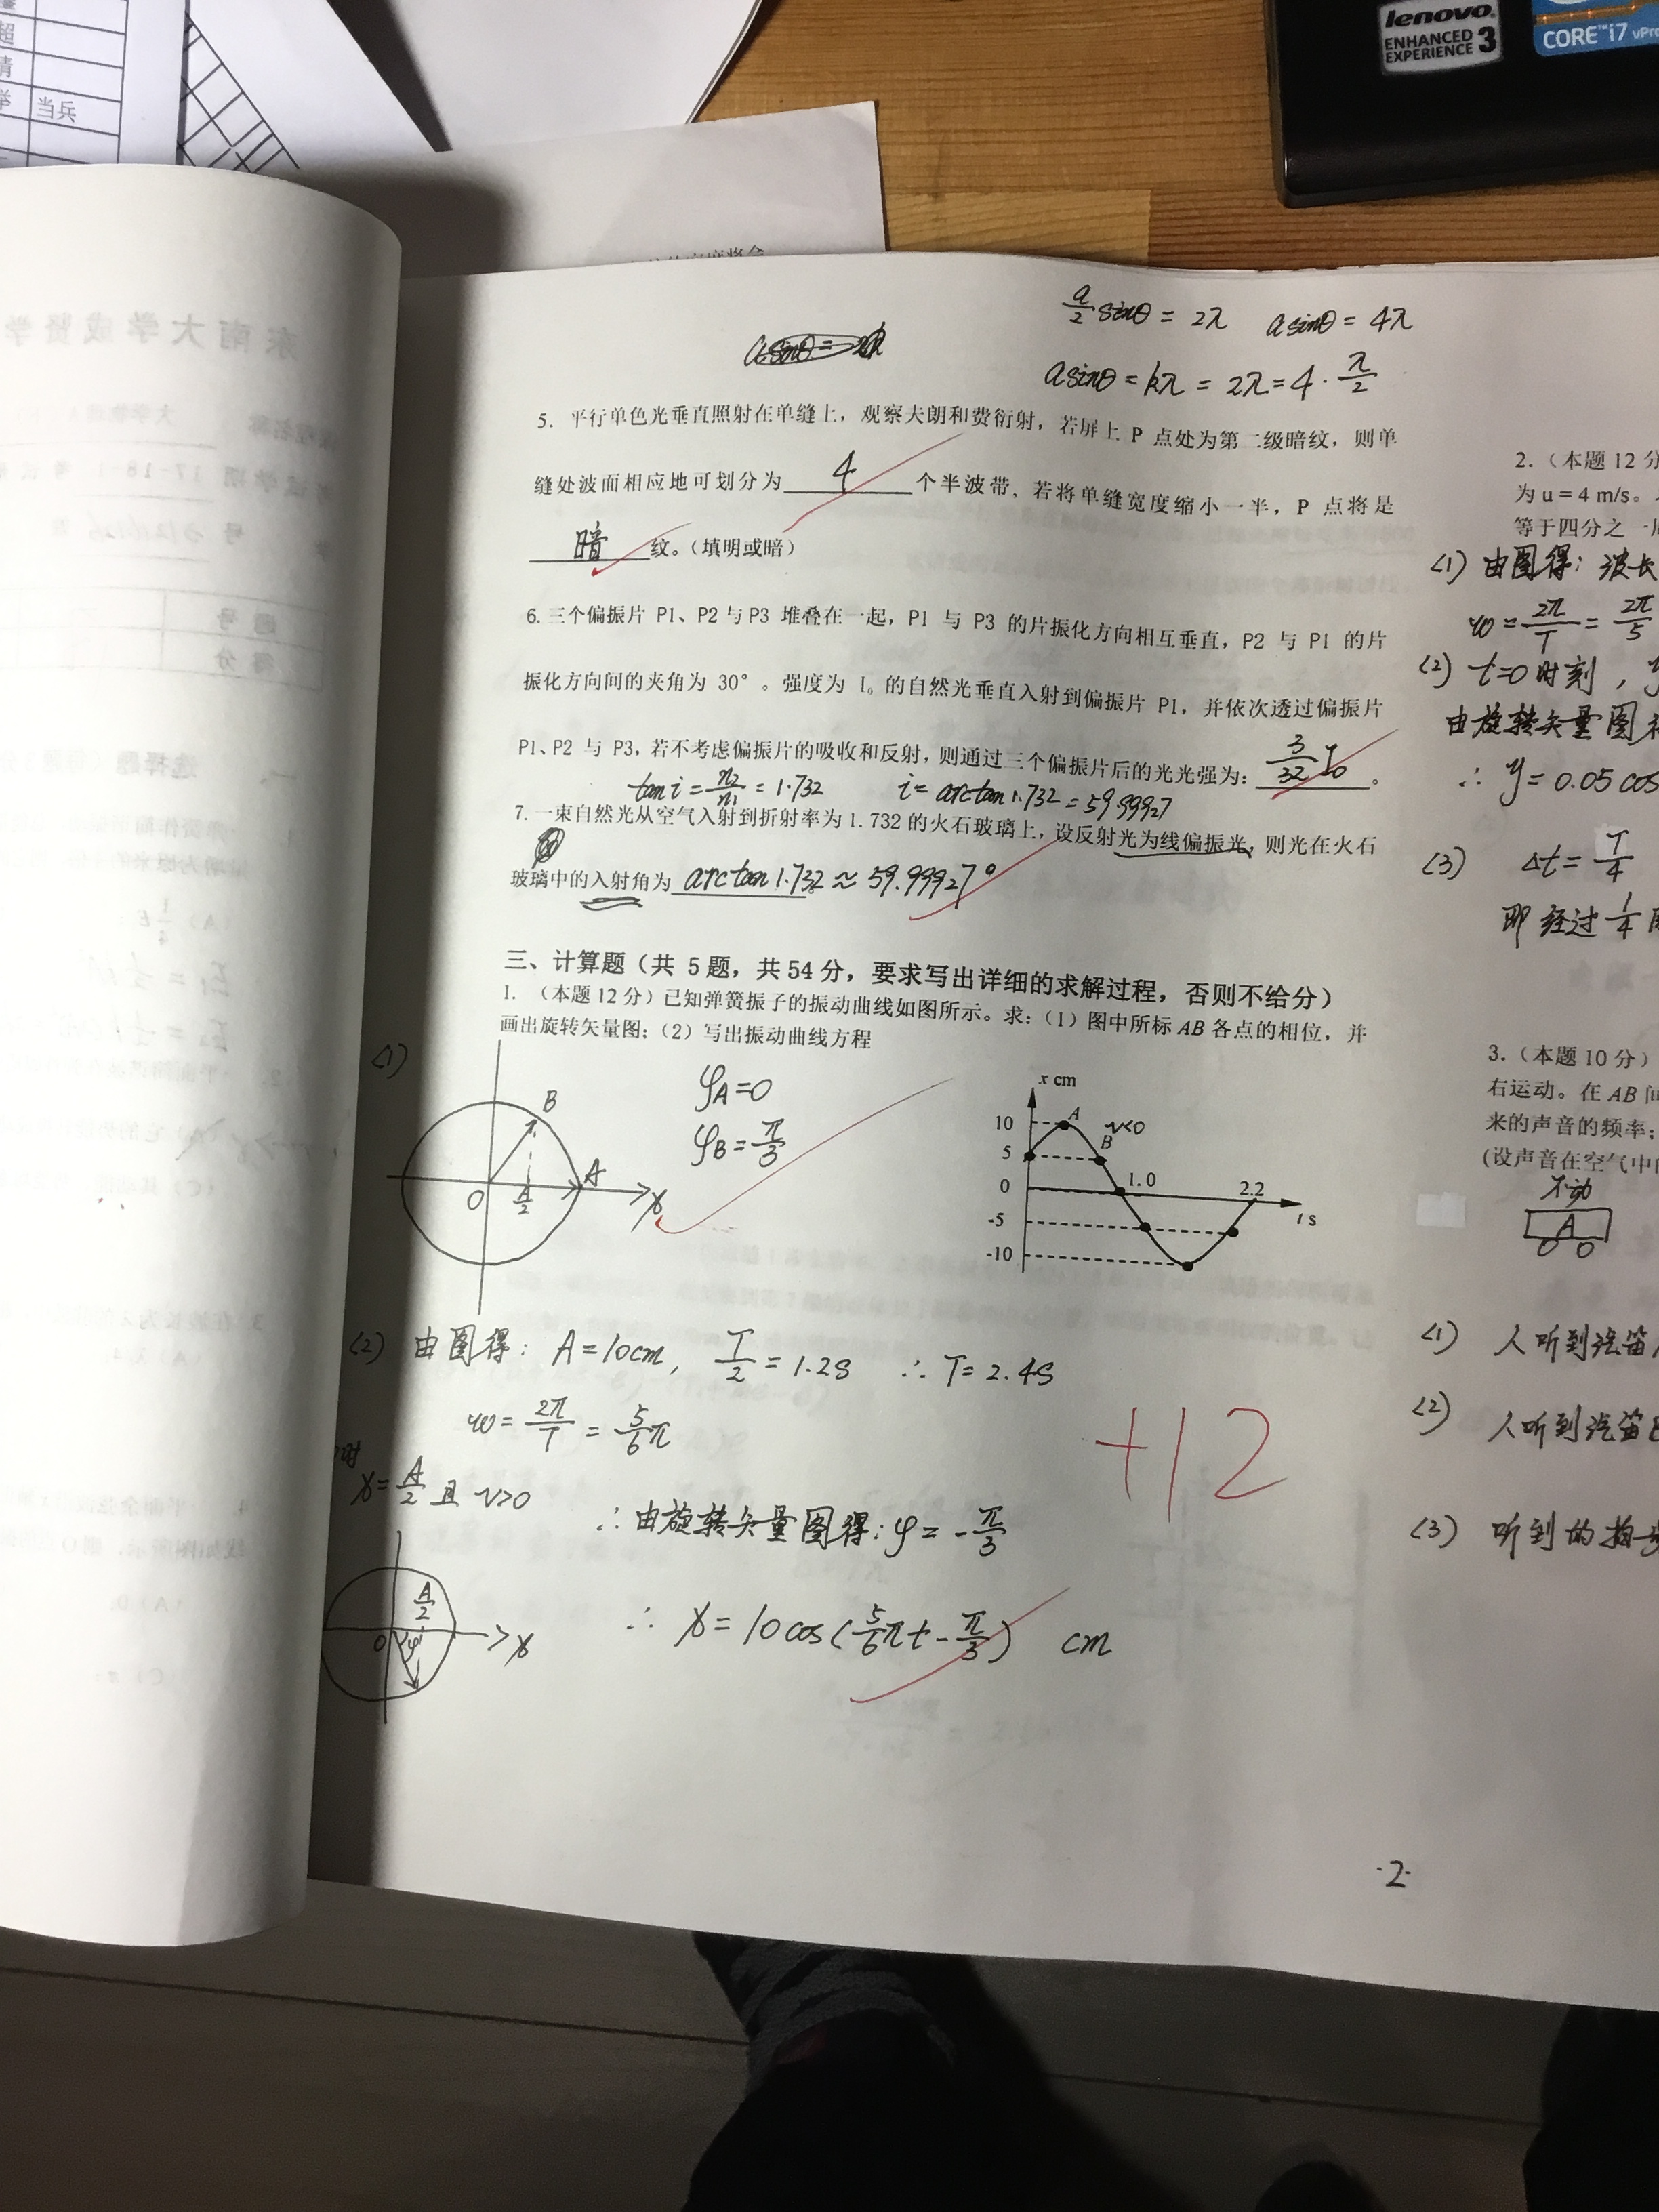 超
清
当兵
lenovo
ENHANCED
EXPERIENCE 3
CORE i7 vPro
a/2 sinθ = 2λ   a sinθ = 4λ
a sinθ = kλ = 2λ = 4 · λ/2
5. 平行单色光垂直照射在单缝上，观察夫朗和费衍射，若屏上 P 点处为第二级暗纹，则单
缝处波面相应地可划分为 4 个半波带，若将单缝宽度缩小一半，P 点将是
暗 纹。（填明或暗）
6.三个偏振片 P1、P2 与 P3 堆叠在一起，P1 与 P3 的片振化方向相互垂直，P2 与 P1 的片
振化方向间的夹角为 30°。强度为 I₀ 的自然光垂直入射到偏振片 P1，并依次透过偏振片
P1、P2 与 P3，若不考虑偏振片的吸收和反射，则通过三个偏振片后的光光强为: 3/32 I₀ 。
tan i = n₂/n₁ = 1.732   i = arctan 1.732 = 59.99927
7.一束自然光从空气入射到折射率为 1.732 的火石玻璃上，设反射光为线偏振光，则光在火石
玻璃中的入射角为 arctan 1.732 ≈ 59.99927°
三、计算题（共 5 题，共 54 分，要求写出详细的求解过程，否则不给分）
1. （本题 12 分）已知弹簧振子的振动曲线如图所示。求:（1）图中所标 AB 各点的相位，并
画出旋转矢量图;（2）写出振动曲线方程
(1)
B
A
O
A/2
x
φA=0
φB=π/3
x cm
10
A
v<0
5
B
0
1.0
2.2
t s
-5
-10
(2) 由图得: A=10cm, T/2=1.2s ∴ T=2.4s
ω = 2π/T = 5/6 π
+12
时
x=A/2 且 v>0
∴ 由旋转矢量图得: φ = -π/3
A/2
O
φ
x
∴ x = 10 cos(5/6 πt - π/3) cm
·2·
2.（本题 12 分
为 u = 4 m/s。
等于四分之一
(1) 由图得: 波长
ω = 2π/T = 2π/5
(2) t=0 时刻，y
由旋转矢量图得
∴ y = 0.05 cos
(3) Δt = T/4
即 经过 1/4
3.（本题 10 分）
右运动。在 AB 间
来的声音的频率;
(设声音在空气中
不动
A
(1) 人听到汽笛A
(2) 人听到汽笛B
(3) 听到的拍